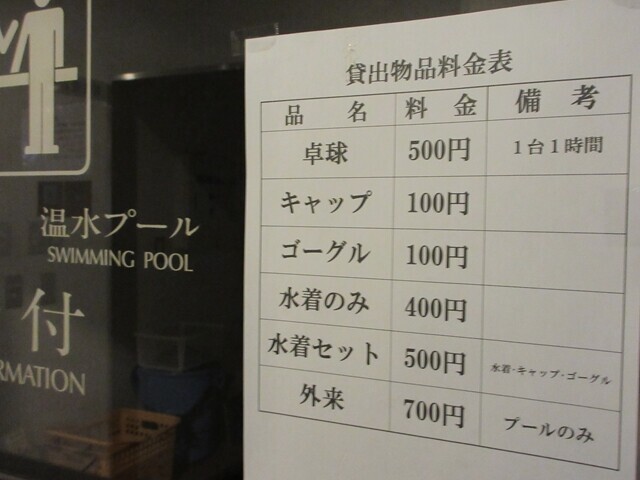 温水プール
SWIMMING POOL
付
RMATION
貸出物品料金表
品 名 料 金 備 考
卓球 500円 1台1時間
キャップ 100円
ゴーグル 100円
水着のみ 400円
水着セット 500円 水着・キャップ・ゴーグル
外来 700円 プールのみ